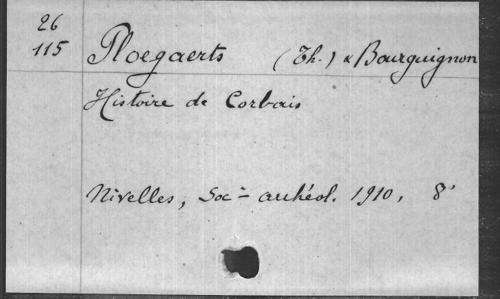 26
115
Ploegaerts (Th.) & Bourguignon
Histoire de Corbais
Nivelles, Soc - archéol. 1910, 8°